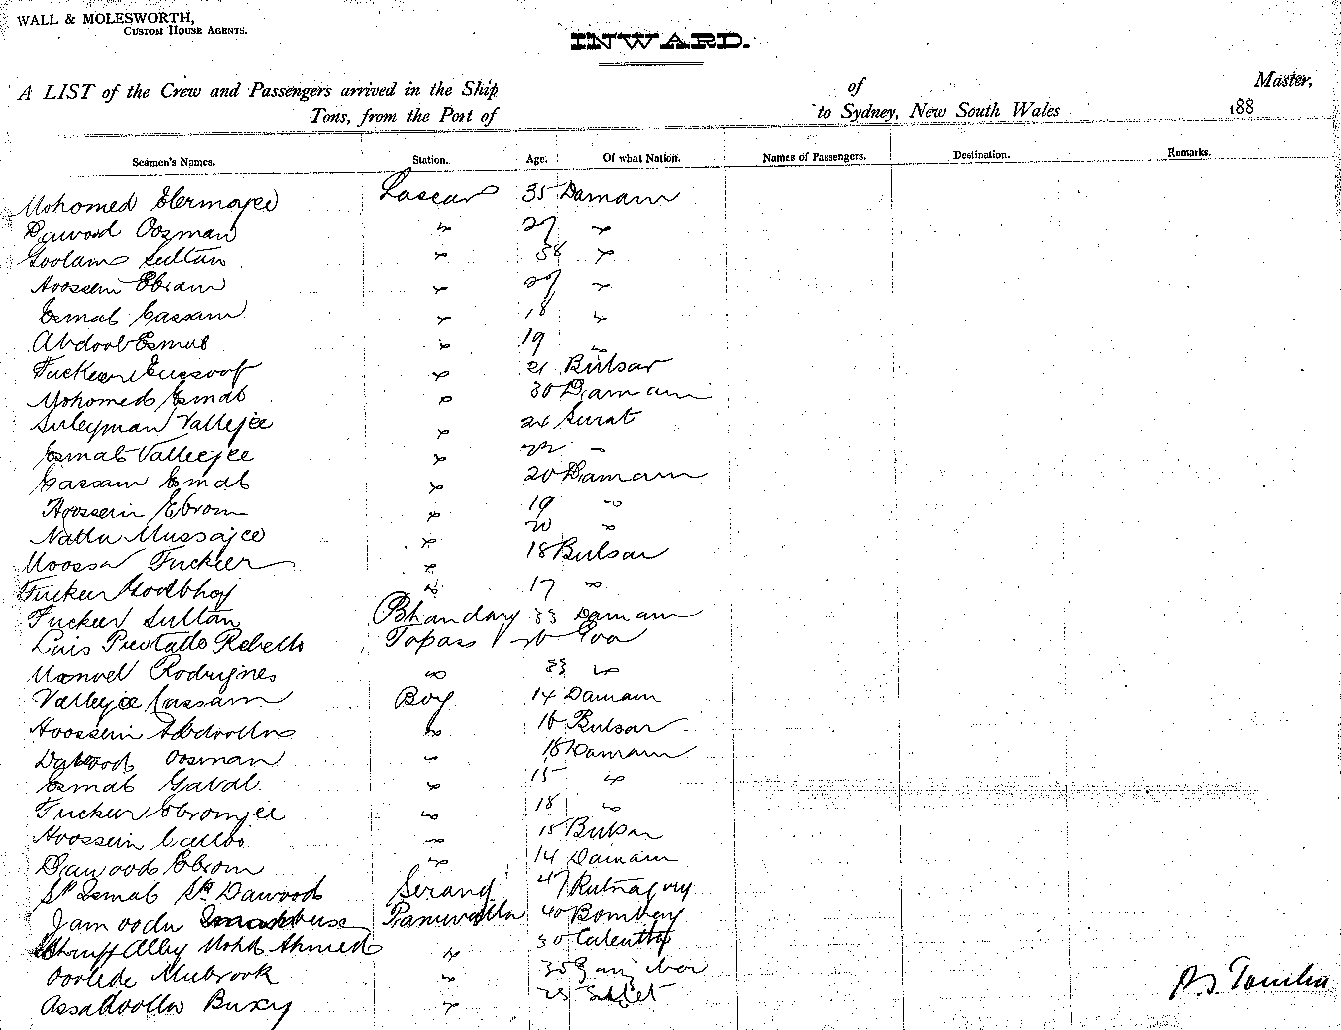 WALL & MOLESWORTH,
CUSTOM HOUSE AGENTS.
INWARD.
A LIST of the Crew and Passengers arrived in the Ship of Master,
Tons, from the Port of to Sydney, New South Wales 188
Seamen's Names. Station. Age. Of what Nation. Names of Passengers. Destination. Remarks.
Mohomed Lascar 35 Damam
Dawood Oosman " 27 "
Goolam Sultan " 38 "
Hoossein Ebram " 27 "
Esmal Cassam " 18 "
Abdool Esmal " 19 "
Fuckeer Eussoof " 21 Bulsar
Mohomed Esmal " 30 Damam
Suleyman Vallejee " 24 Surat
Esmal Vallejee " 22 "
Cassam Esmal " 20 Damam
Hoossein Ebrom " 19 "
Nalla Mussajee " 20 "
Moossa Fuckeer " 18 Bulsar
Fuckeer " 17 "
Fuckeer Sultan Bhandary 33 Damam
Luis Rebello Topass Goa
Manoel Rodrigues " 33 "
Vallejee Cassam Boy 14 Damam
Hoossein Abdoolla " 16 Bulsar
Dawood Oosman " 18 Damam
Esmal " 15 "
Fuckeer Ebromjee " 18 "
Hoossein " 15 Bulsar
Dawood Ebrom " 14 Damam
Sk Esmal Sk Dawood Serang 47 Rutnagery
Jamoodu 40 Bombay
Alley Mohd Ahmed " 30 Calcutta
Mubrook " 35 Zanzibar
Assadoolla Buxy " 25